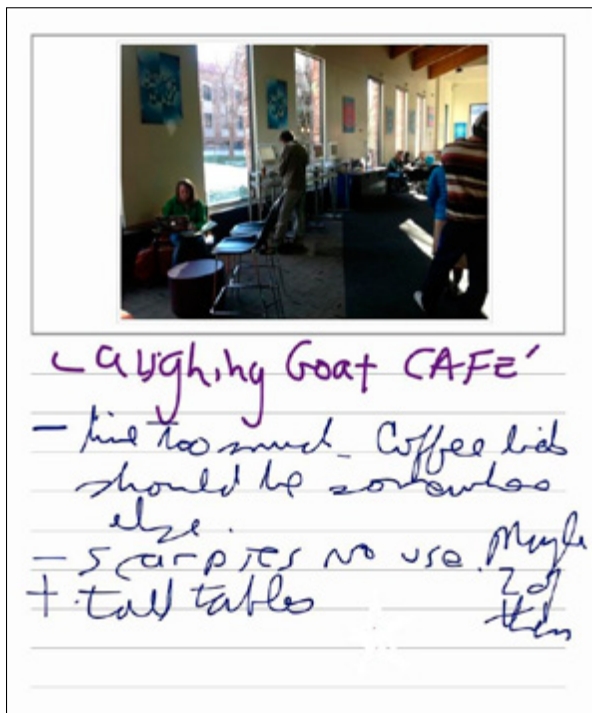 Laughing Goat CAFE'
- line too much - Coffee lids
should be somewhere
else.
- scarpies no use. Maybe
+ tall tables 2 of
them